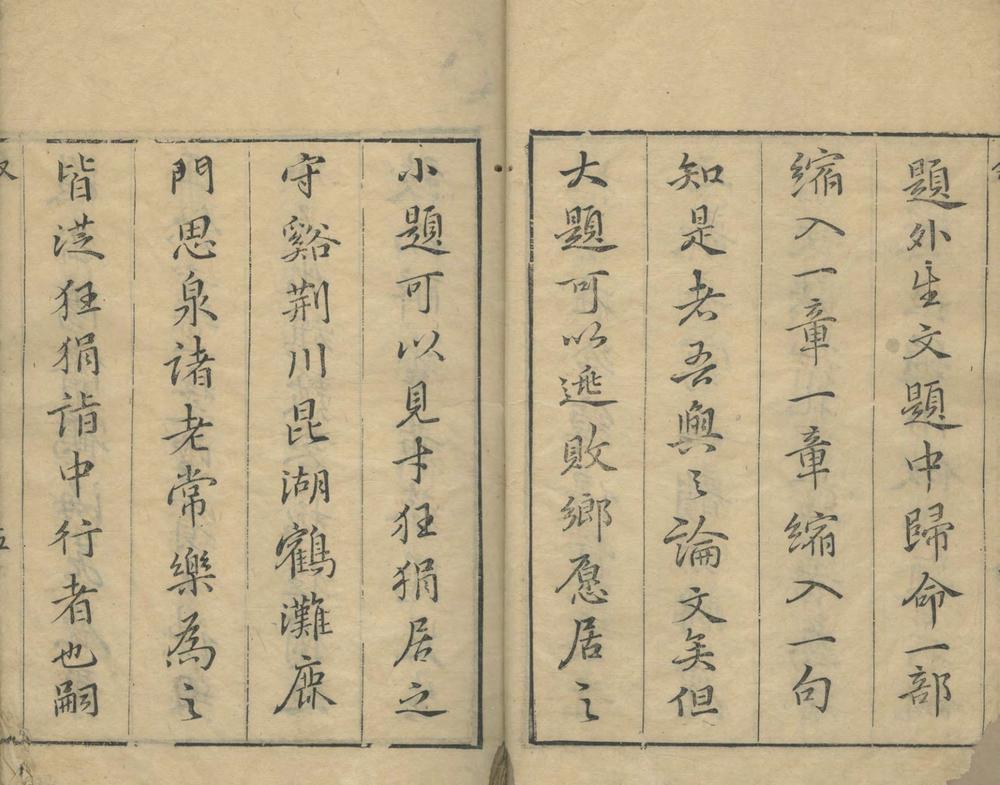 題外生文題中歸命一部
縮入一章一章縮入一句
知是老吾與之論文矣但
大題可以逃敗鄉愿居之
小題可以見才狂狷居之
守谿荆川昆湖鶴灘鹿
門思泉諸老常樂為之
皆従狂狷詣中行者也嗣